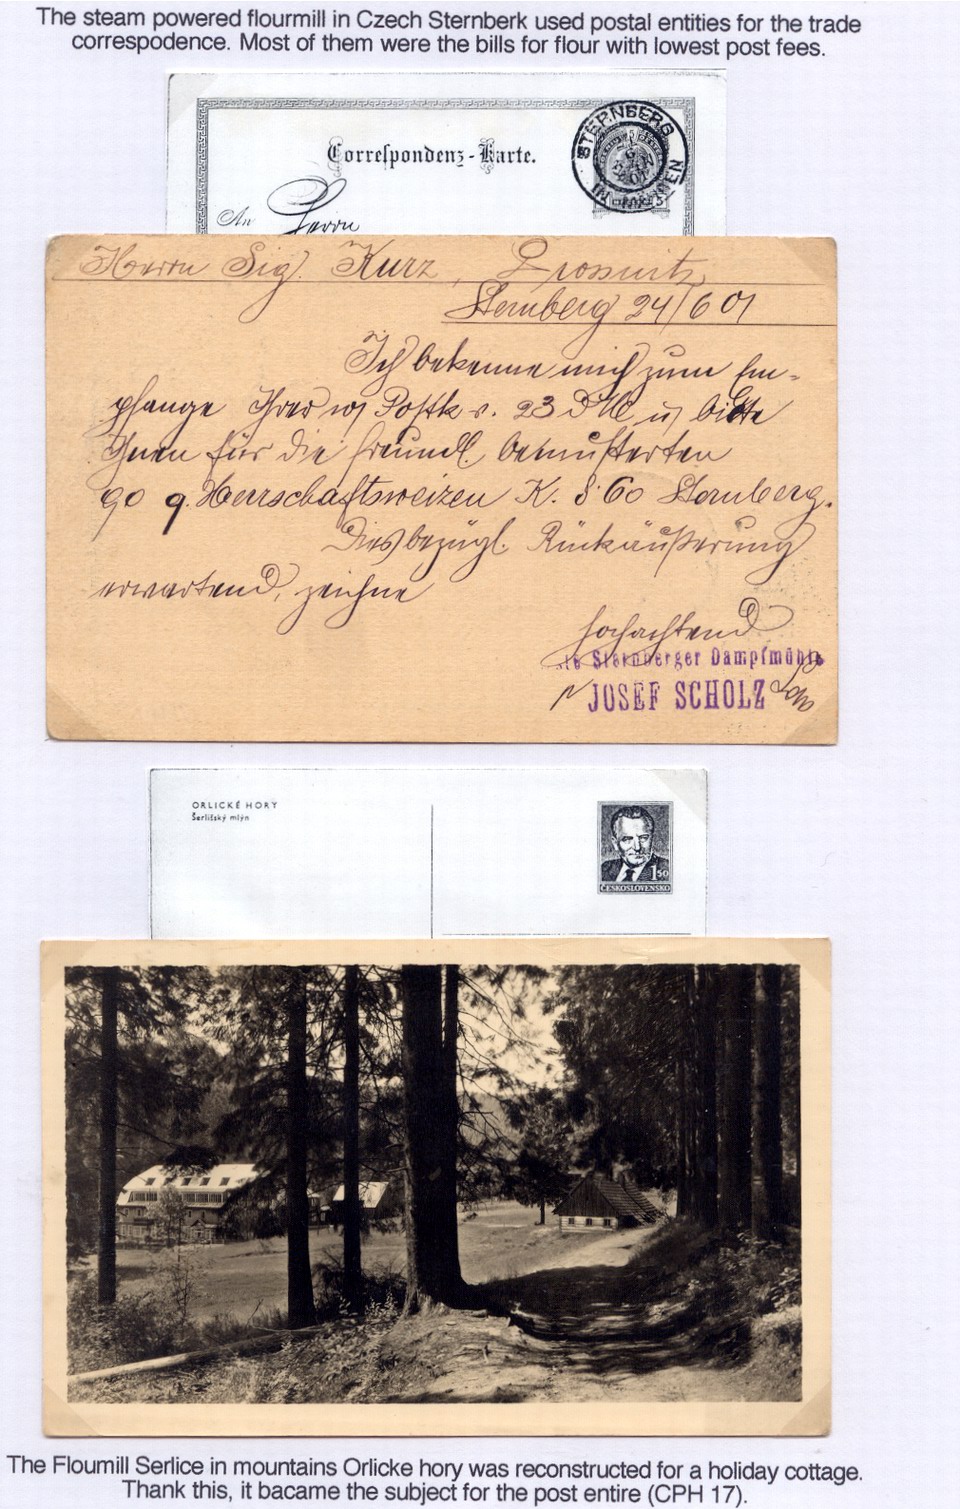 The steam powered flourmill in Czech Sternberk used postal entities for the trade
correspodence. Most of them were the bills for flour with lowest post fees.
Correspondenz-Karte.
STERNBERG
IN MÄHREN
An Herrn
Herrn Sig. Kurz, Prossnitz
Sternberg 24/6 01
Ich bekenne mich zum Em-
pfange Ihrer Postk v. 23 d M u bitte
Ihnen für die freundl. bemusterten
90 q. Herrschaftsweizen K. 8.60 Sternberg.
Diesbezügl. Rückäußerung
erwartend, zeichne
hochachtend
Sternberger Dampfmühle
JOSEF SCHOLZ
ORLICKÉ HORY
Šerlišský mlýn
1.50
ČESKOSLOVENSKO
The Floumill Serlice in mountains Orlicke hory was reconstructed for a holiday cottage.
Thank this, it bacame the subject for the post entire (CPH 17).